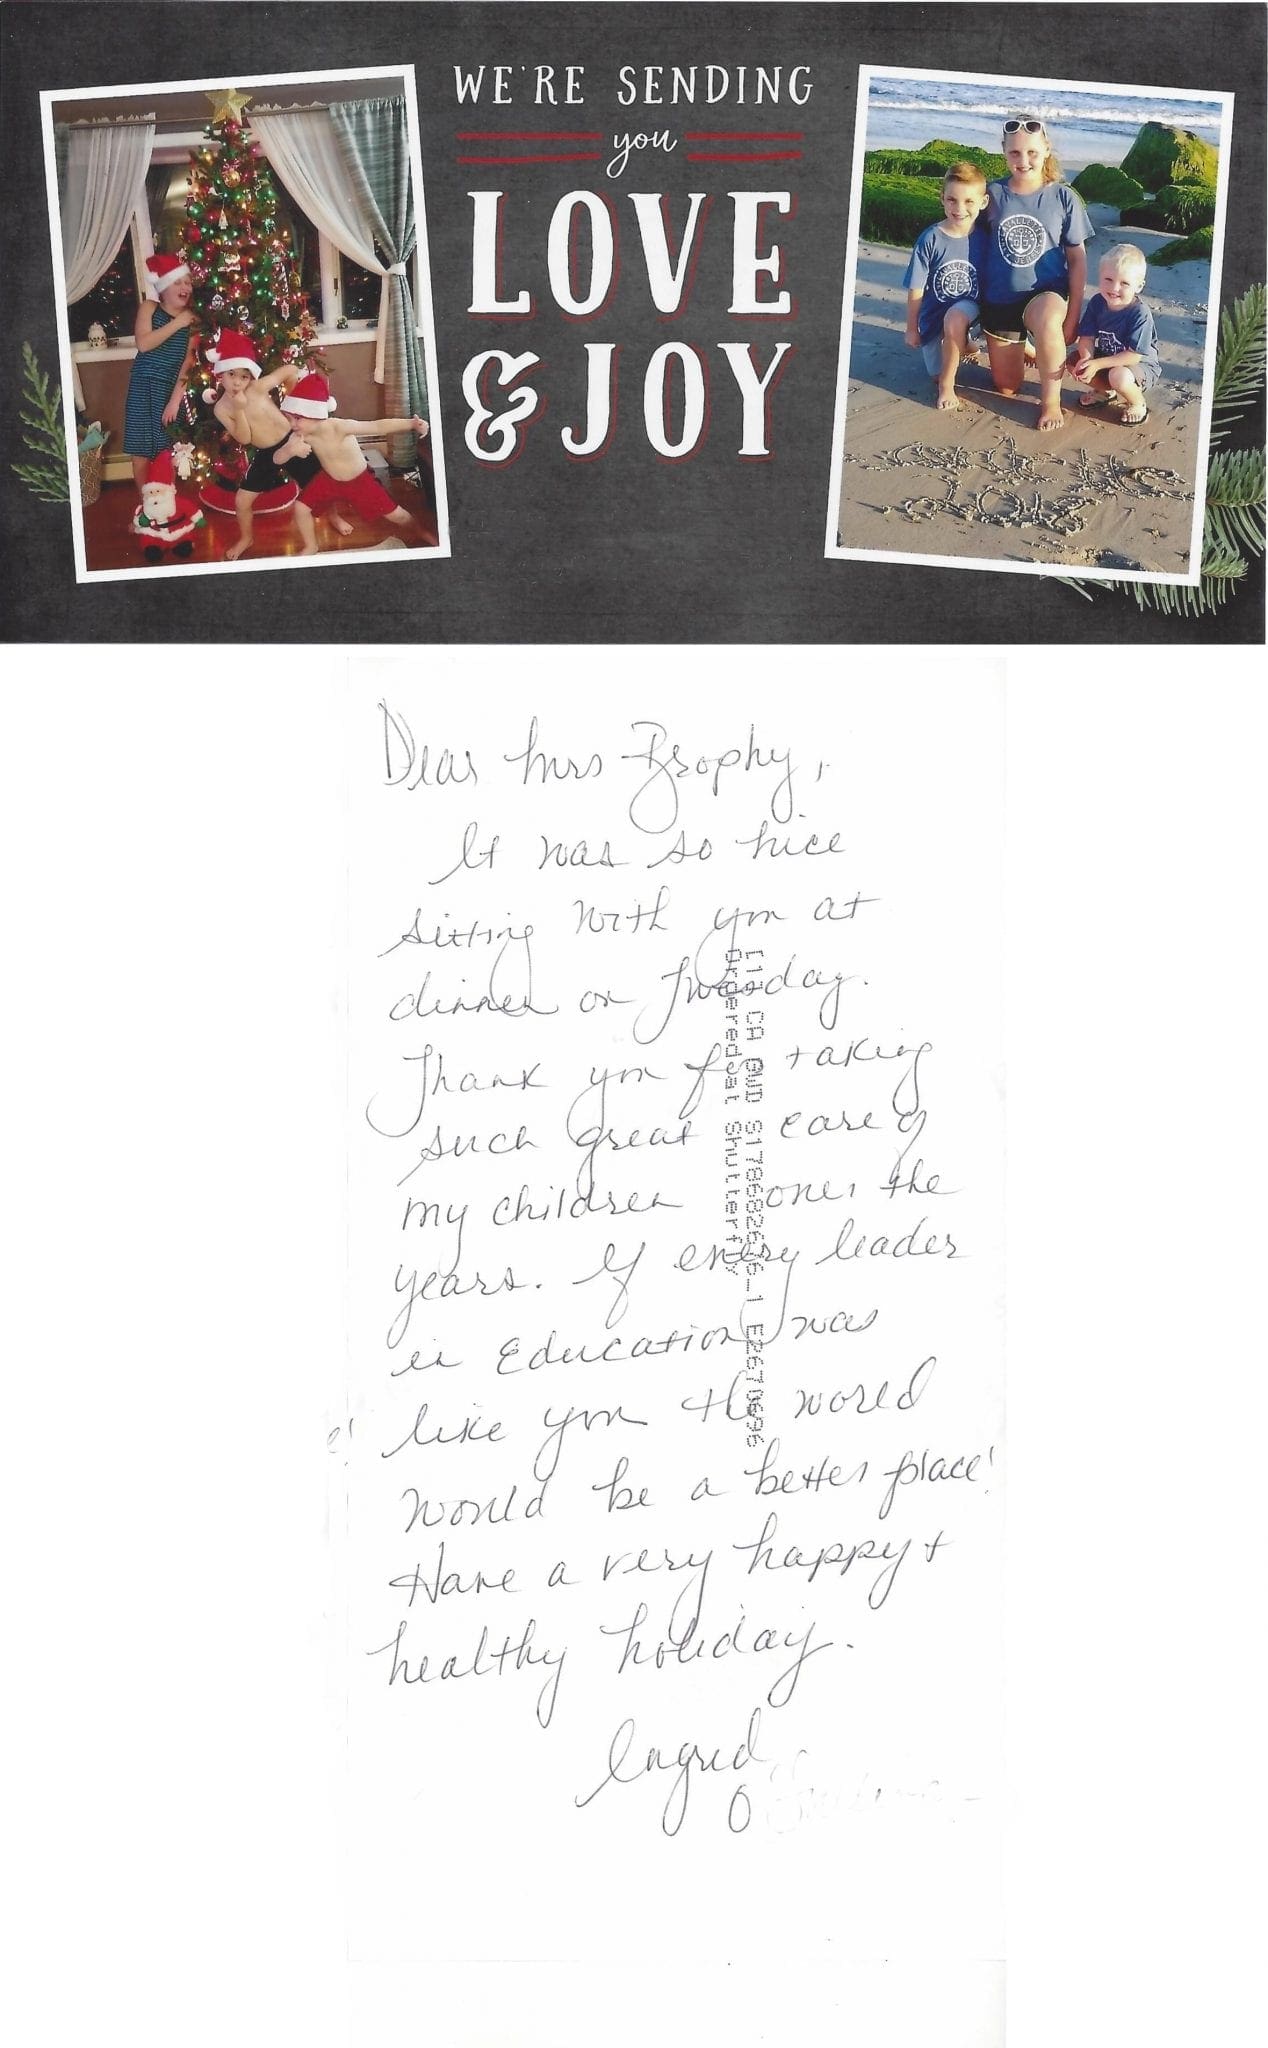 WE'RE SENDING
you
LOVE
& JOY
Dear Mrs Brophy,
It was so nice
sitting with you at
dinner on Tuesday.
Thank you for taking
such great care of
my children over the
years. If every leader
in Education was
like you the world
would be a better place!
Have a very happy +
healthy holiday.
Ingrid
Ordered at Shutterfly